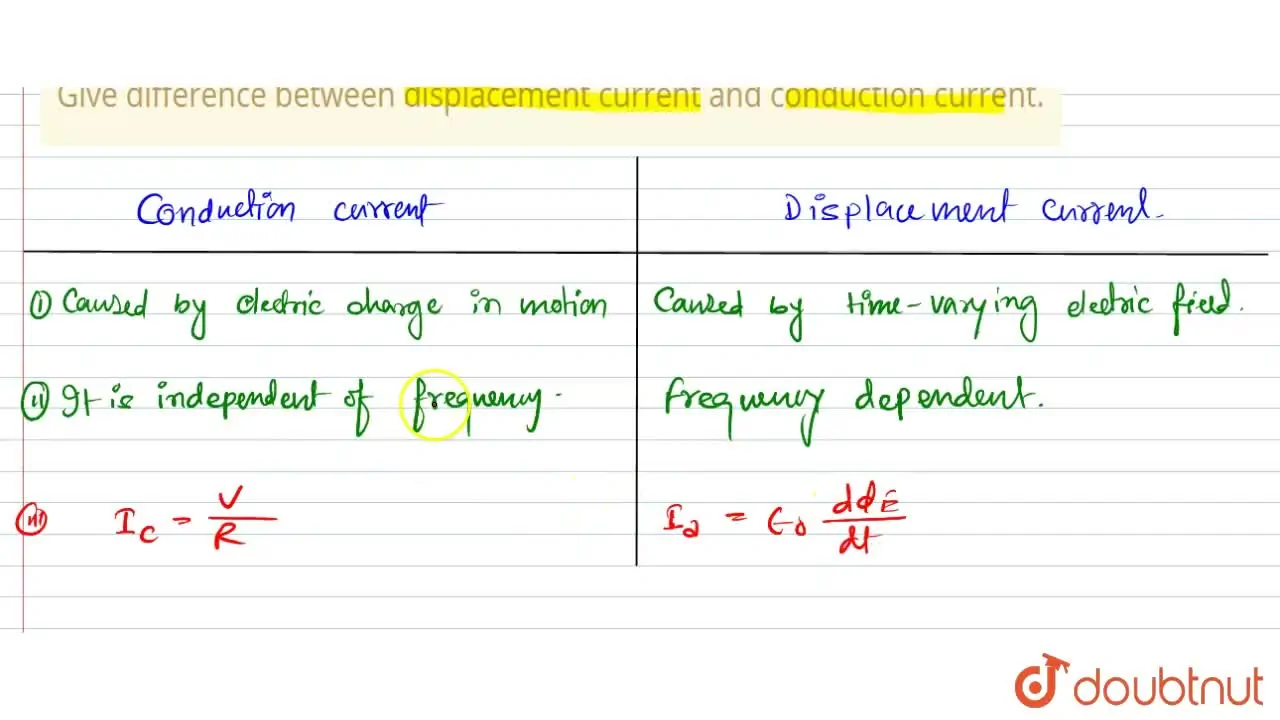 Give difference between displacement current and conduction current.
Conduction current
Displacement current.
(i) Caused by electric charge in motion
Caused by time-varying electric field.
(ii) It is independent of frequency.
Frequency dependent.
(iii) I_C = V/R
I_d = ϵ₀ dϕ_E/dt
doubtnut